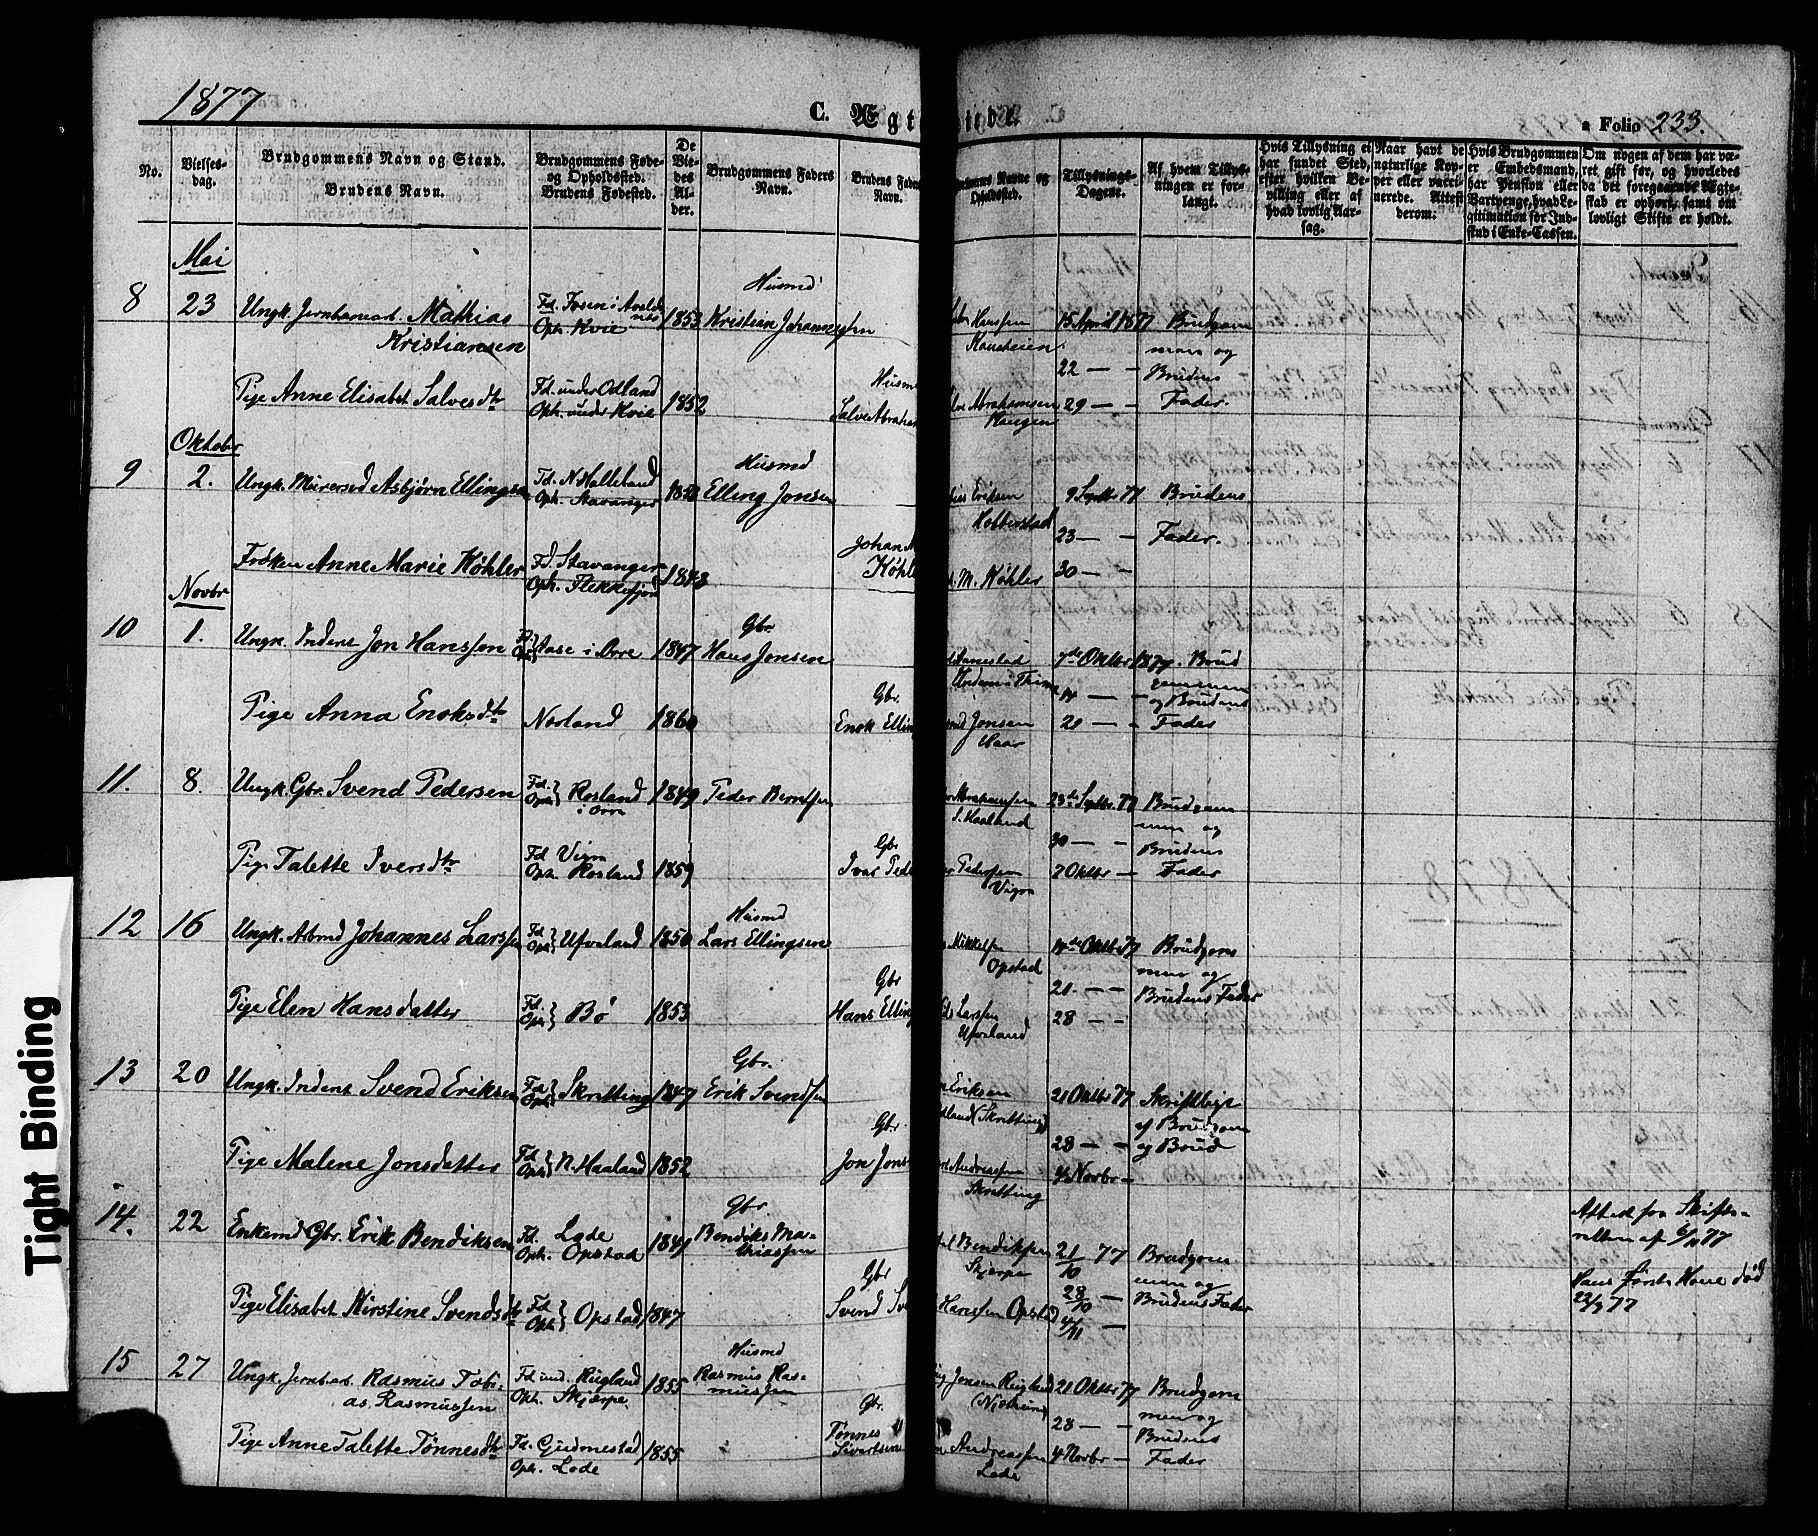 1877
C. Ægt
a Folio 233.
No.
Vielses-
dag.
Brudgommens Navn og Stand.
Brudens Navn.
Brudgommens Føde-
og Opholdssted.
Brudens Fødested.
De
Vie-
des
Al-
der.
Brudgommens Faders
Navn.
Brudens Fad
Navn.
Navne og
Opholdssted.
Tillysnings-
Dagene.
Af hvem Tillys-
ningen er for-
langt.
Hvis Tillysning ei
har fundet Sted,
efter hvilken Be-
villing eller af
hvad lovlig Aar-
sag.
Naar havt de
naturlige Kop-
per eller vacci-
nerede. Attest
derom.
Hvis Brudgommen
er Embedsmand,
har Pension eller
Vartpenge, hvad Le-
gitimation for Ind-
skud i Enke-Cassen.
Om nogen af dem har væ-
ret gift før, og hvorledes
da det foregaaende Ægte-
skab er ophørt, samt om
lovligt Skifte er holdt.
Mai
8 23 Ungk. Jernbanearb. Mathias
Kristiansen
Oph. Kvie
1853
Husmd
Kristian Johannessen
Hanssen
15 April 1877 Brudgom
men og
22 — — Brudens
Pige Anne Elisabet Salvesdtr
Fd. under Odland
Oph. under Kvie
1852
Husm
Salve Abraham
Abrahamsen
Haugen
29 — — Fader.
Oktober
9 2. Ungk. Murersvd Asbjørn Ellingsen
Fd. N. Halleland
Oph. Stavanger
Husmd
Elling Jonsen
Eriksen
Hobberstad
9 Septbr 77 Brudens
23 — — Fader.
Frøken Anne Marie Køhler
Fd. Stavanger
Oph. Flekkefjord
1848
Johan
Køhle
M. Køhler
30 — —
Novbr
10 1. Ungk. Inderst Jon Hanssen
Fd. Oph. Aase i Orre
1847
Gbr.
Hans Jonsen
7de Oktbr 1877. Brud
gommen
14 — — og Brudens
Pige Anna Enoksdtr
Norland
1860
Gbr.
Enok Elling
Jonsen
Haar
21 — — Fader
11. 8. Ungk. Gbr. Svend Pedersen
Fd. Oph. Rosland
i Orre
1849
Peder Berntsen
Abrahamsen
S. Haaland
23de Septbr. 77 Brudgom
men og
30 — — Brudens
Pige Talette Iversdtr
Fd. Vigre
Oph. Rosland
1859
Gbr
Ivar Peder
Pedersen
Vigre
7 Oktbr — Fader
12 16 Ungk. Arbmd Johannes Larssen
Fd. Oph. Ufveland
1850
Husmd
Lars Ellingsen
Mikkelsen
Opstad
14de Oktbr 77 Brudgom
men og
21. — — Brudens Fader
Pige Elen Hansdatter
Fd. Oph. Bø
1853
Gbr
Hans Elling
Larssen
Ufveland
28 — —
13 20 Ungk. Inderst Svend Eriksen
Fd. Oph. Skretting
1847
Gbr.
Erik Svendsen
Eriksen
(Skretting)
21 Oktbr 77 Skriftligt
af Brudgom
28 — — og Brud
Pige Malene Jonsdatter
Fd. Oph. N. Haaland
1852
Gbr
Jon Jons
Andreassen
Skretting
4 Novbr —
14. 22 Enkemd Gbr. Erik Bendiksen
Fd. Lode
Oph. Opstad
1841
Gbr.
Bendiks Ma-
thiassen
Bendiksen
Skjærpe
21/10 77 Brudgom
men og
28/10 — Brudens Fader
Attest fra Skifte-
retten af 6/11 77
Hans første Kone død
22/3 77
Pige Elisabet Kirstine Svendsdtr
Fd. Oph. Opstad
1847
Gbr
Svend Sv
Hanssen Opstad
4/11 —
15 27 Ungk. Jernb.arb. Rasmus Tobi-
as Rasmussen
Fd. und. Reigland
Oph. Skjærpe
1855
Husmd
Rasmus Ras-
mussen
Jonsen Reigland
21 Oktbr 77 Brudgom
men og
28 — — Brudens
Pige Anne Talette Tønnesdtr
Fd. Gudmestad
Oph. Lode
1855
Gbr.
Tønnes
Sivertsen
Andreassen
Lode
4 Novbr — Fader
1878
Tight Binding